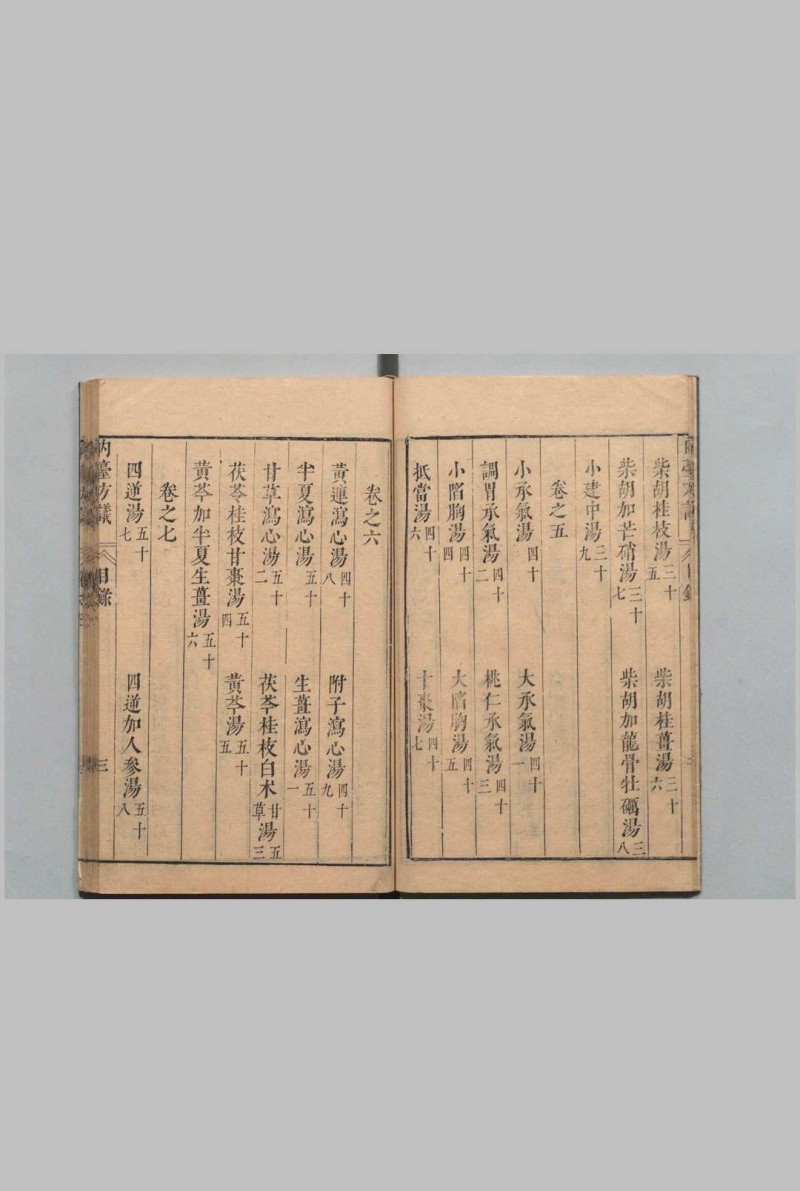 柴胡桂枝湯三十五 柴胡桂薑湯三十六
柴胡加芒硝湯三十七 柴胡加龍骨牡礪湯三八
小建中湯三十九
卷之五
小承氣湯四十 大承氣湯四十一
調胃承氣湯四十二 桃仁承氣湯四十三
小陷胸湯四十四 大陷胸湯四十五
抵當湯四十六 十棗湯四十七
卷之六
黃連瀉心湯四十八 附子瀉心湯四十九
半夏瀉心湯五十 生薑瀉心湯五十一
甘草瀉心湯五十二 茯苓桂枝白木甘草湯五三
茯苓桂枝甘棗湯五十四 黃芩湯五十五
黃芩加半夏生薑湯五十六
卷之七
四逆湯五十七 四逆加人參湯五十八
內臺方議 目錄 三